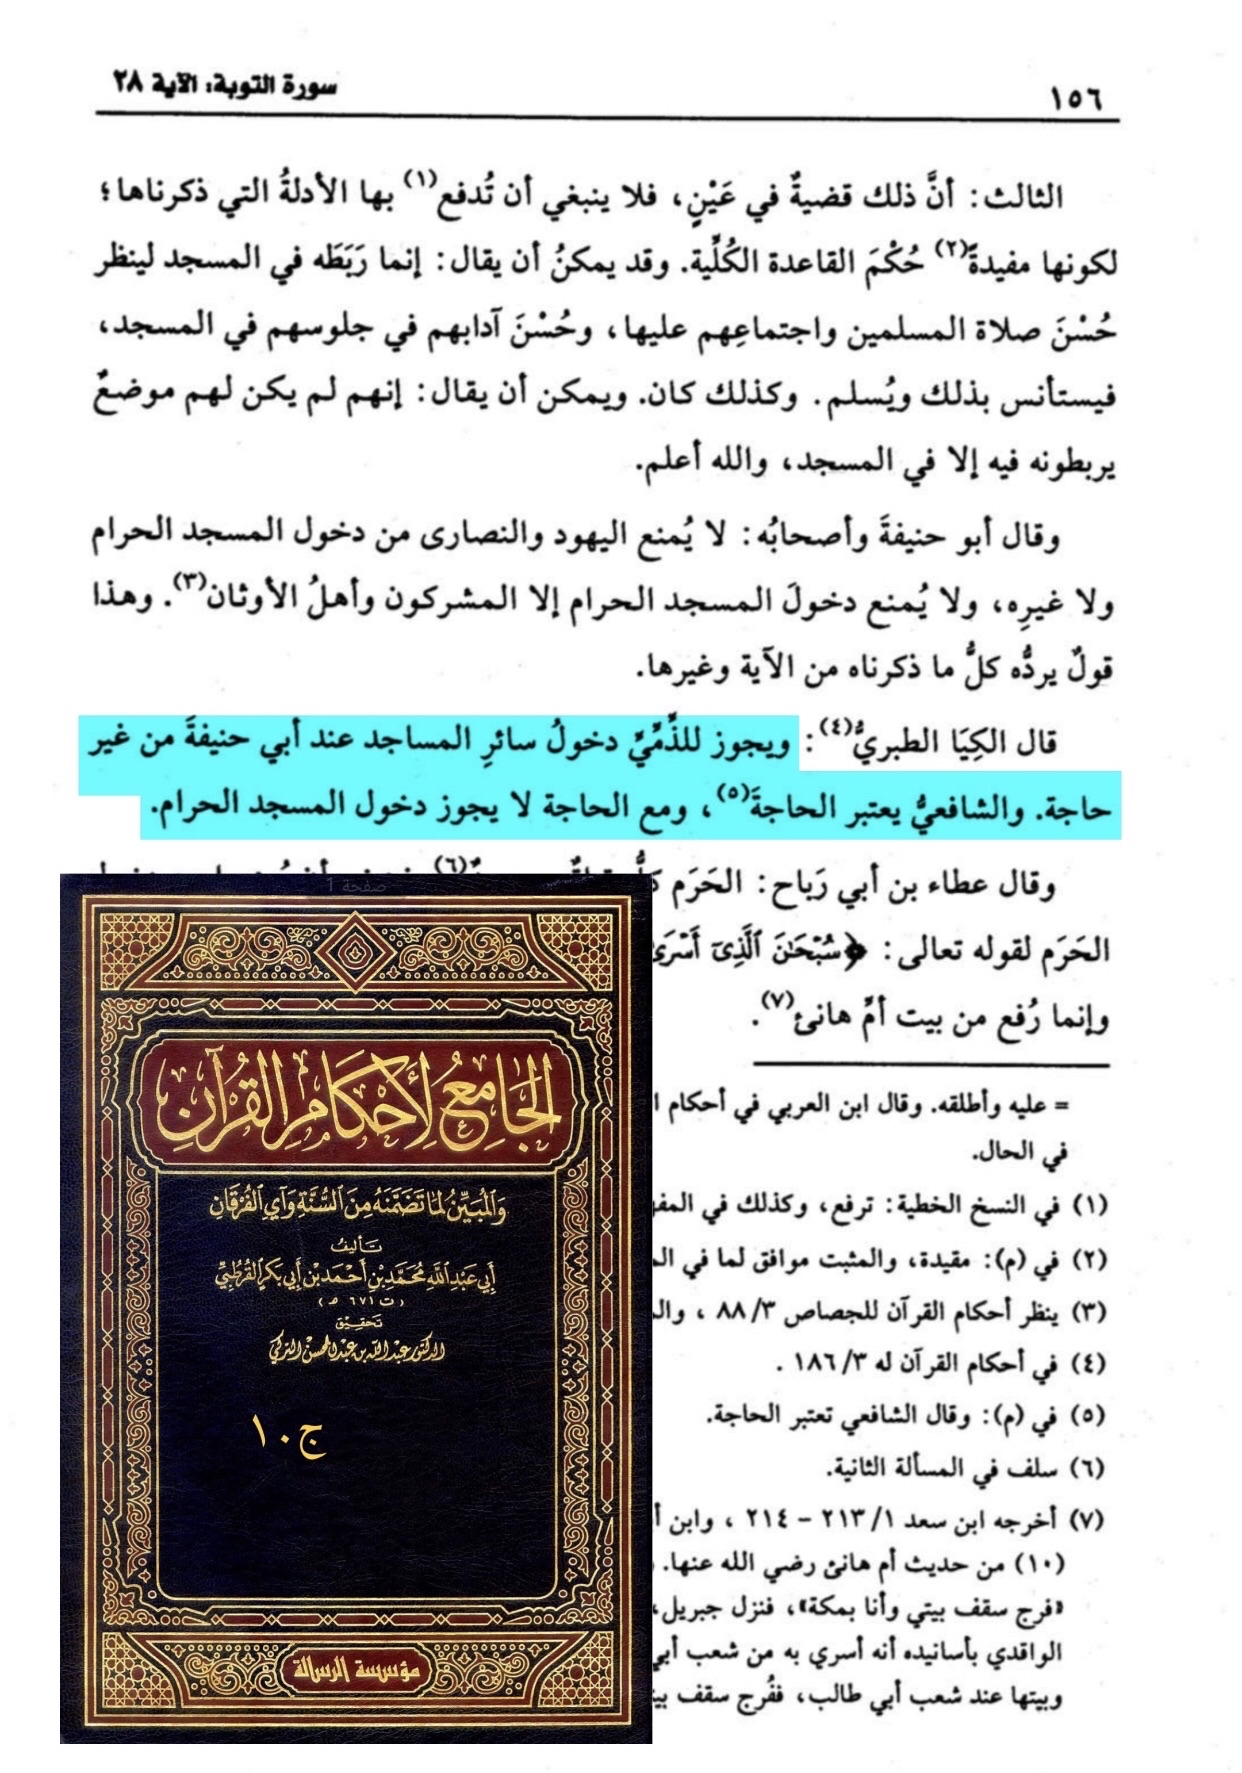 ١٥٦
سورة التوبة: الآية ٢٨
الثالث: أنَّ ذلك قضيةٌ في عَيْنٍ، فلا ينبغي أن تُدفع(١) بها الأدلةُ التي ذكرناها؛
لكونها مفيدةً(٢) حُكْمَ القاعدة الكُلِّية. وقد يمكنُ أن يقال: إنما رَبَطَه في المسجد لينظر
حُسْنَ صلاة المسلمين واجتماعِهم عليها، وحُسْنَ آدابهم في جلوسهم في المسجد،
فيستأنس بذلك ويُسلم. وكذلك كان. ويمكن أن يقال: إنهم لم يكن لهم موضعٌ
يربطونه فيه إلا في المسجد، والله أعلم.
وقال أبو حنيفةَ وأصحابُه: لا يُمنع اليهود والنصارى من دخول المسجد الحرام
ولا غيرِه، ولا يُمنع دخولَ المسجد الحرام إلا المشركون وأهلُ الأوثان(٣). وهذا
قولٌ يردُّه كلُّ ما ذكرناه من الآية وغيرها.
قال الكِيَا الطبريُّ(٤): ويجوز للذِّمِّيِّ دخولُ سائرِ المساجد عند أبي حنيفةَ من غير
حاجة. والشافعيُّ يعتبر الحاجةَ(٥)، ومع الحاجة لا يجوز دخول المسجد الحرام.
وقال عطاء بن أبي رَباح: الحَرَم
الحَرَم لقوله تعالى: ﴿سُبْحَٰنَ ٱلَّذِىٓ أَسْرَىٰ
وإنما رُفع من بيت أمِّ هانئ(٧).
= عليه وأطلقه. وقال ابن العربي في أحكام
في الحال.
(١) في النسخ الخطية: ترفع، وكذلك في
(٢) في (م): مقيدة، والمثبت موافق لما في
(٣) ينظر أحكام القرآن للجصاص ٣/ ٨٨ ،
(٤) في أحكام القرآن له ٣/ ١٨٦ .
(٥) في (م): وقال الشافعي تعتبر الحاجة.
(٦) سلف في المسألة الثانية.
(٧) أخرجه ابن سعد ١/ ٢١٣ – ٢١٤ ، وابن
(١٠) من حديث أم هانئ رضي الله عنها.
«فرج سقف بيتي وأنا بمكة»، فنزل جبريل،
الواقدي بأسانيده أنه أسري به من شعب أبي
وبيتها عند شعب أبي طالب، ففُرج سقف
صفحة 1
الجَامِعُ لِأَحْكَامِ القُرْآنِ
وَالمُبَيِّنُ لِمَا تَضَمَّنَهُ مِنَ السُّنَّةِ وَآيِ الفُرْقَانِ
تَأليفُ
أَبِي عَبْدِ اللَّهِ مُحَمَّدِ بْنِ أَحْمَدَ بْنِ أَبِي بَكْرٍ القُرْطُبِيِّ
(ت ٦٧١ هـ)
تَحقِيق
الدكتور عبد الله بن عبد المحسن التركي
ج ١٠
مؤسسة الرسالة